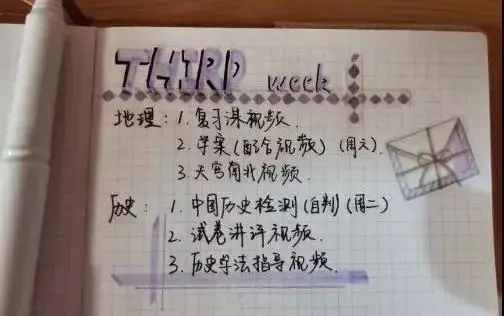 THIRD week
地理：1. 复习课视频.
2. 学案(配合视频)(周六).
3. 天宫南北视频.
历史：1. 中国历史检测(自判)(周二)
2. 试卷讲评视频.
3. 历史学法指导视频.